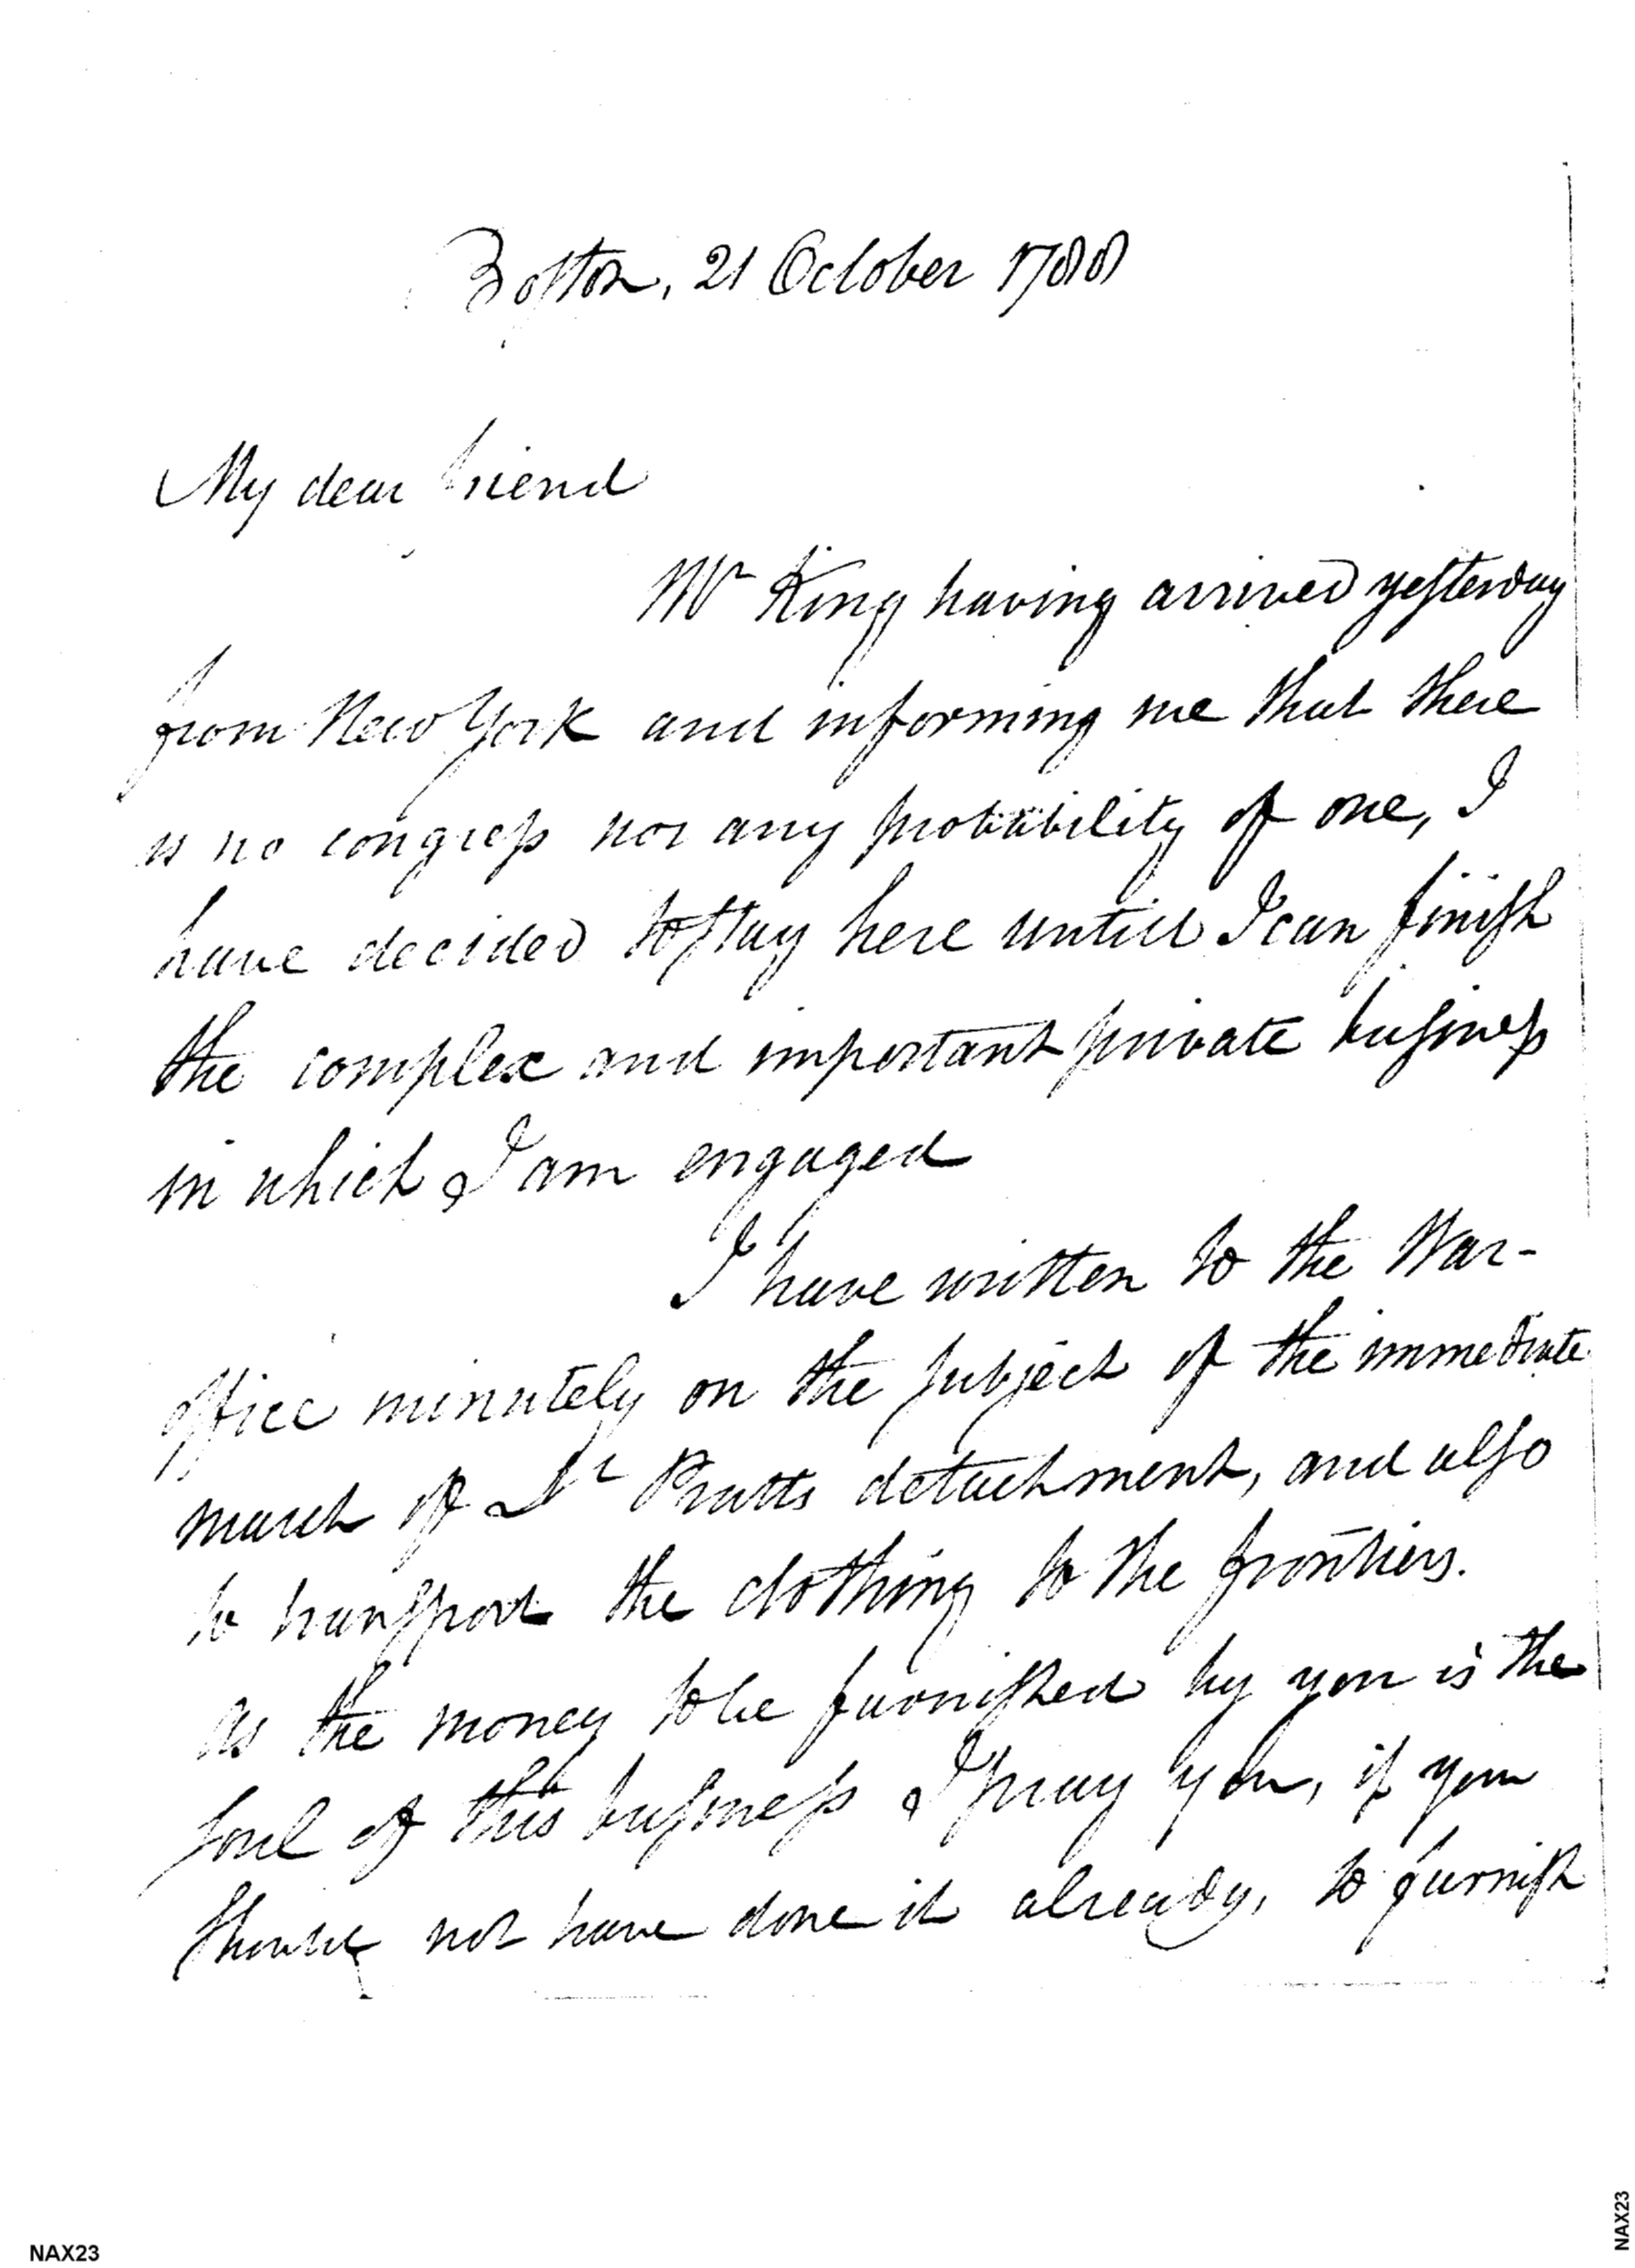 Boston, 21 October 1788
My dear friend
Mr King having arrived yesterday
from New York and informing me that there
is no congress nor any probability of one, I
have decided to stay here untill I can finish
the complex and important private business
in which I am engaged
I have written to the War-
office minutely on the subject of the immediate
march of Lt Pratts detachment, and also
to transport the clothing to the frontiers.
as the money to be furnished by you is the
soul of this business I pray you, if you
should not have done it already, to furnish
NAX23
NAX23